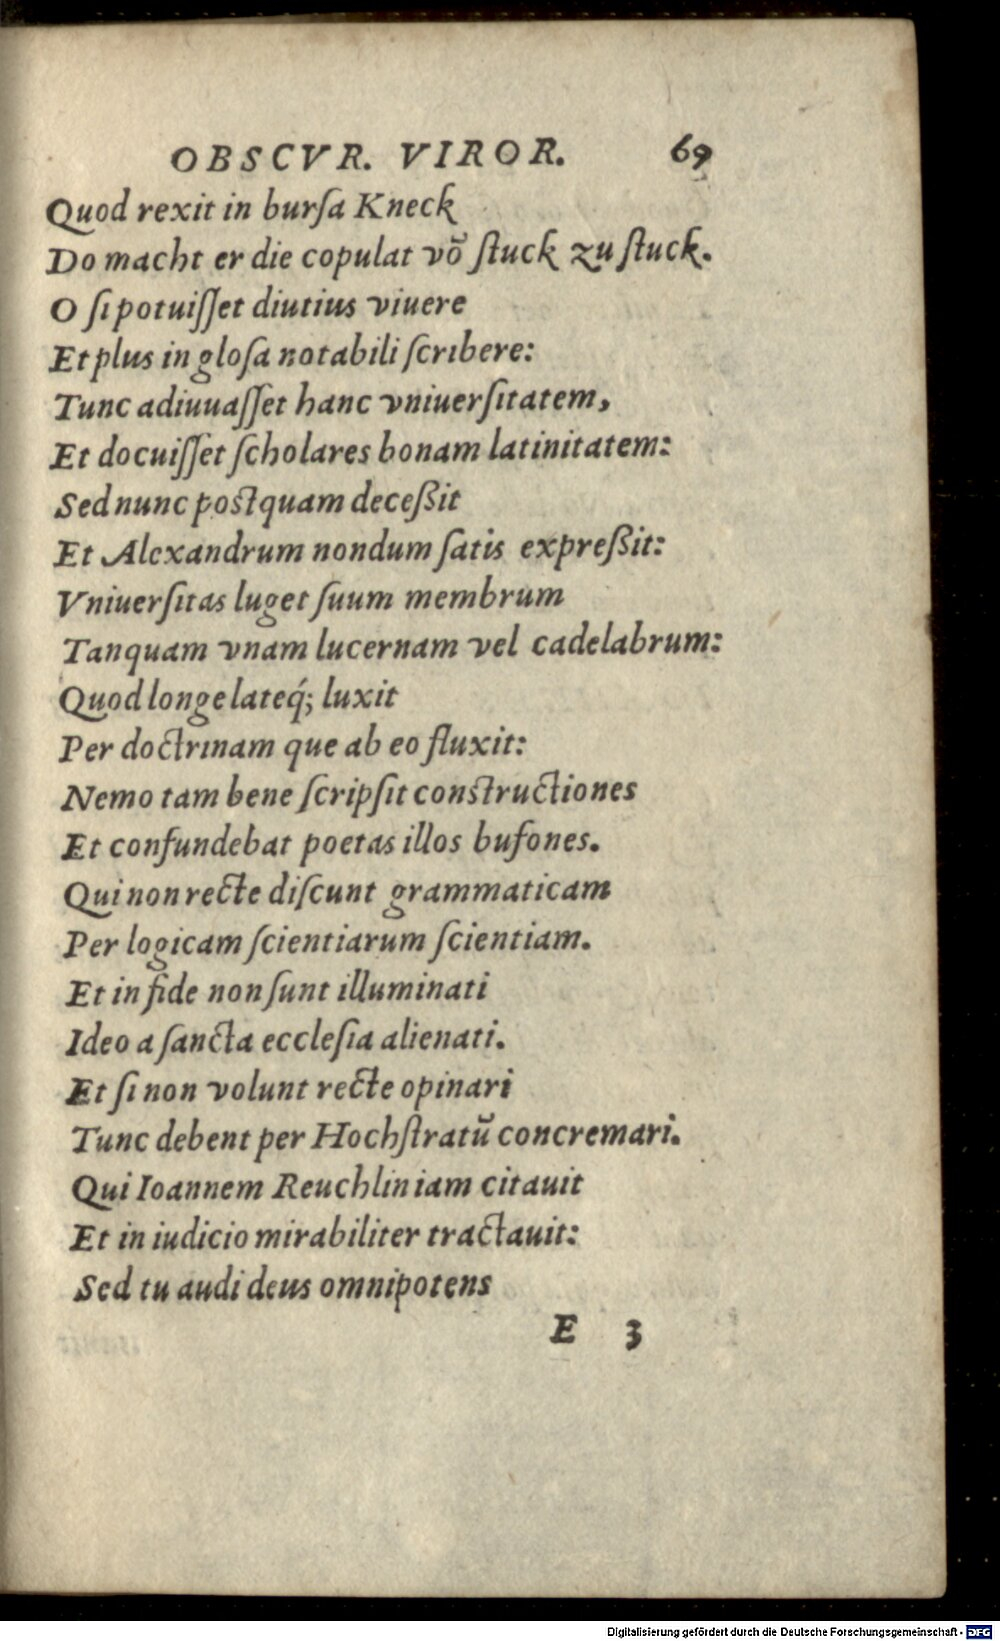 OBSCVR. VIROR. 69
Quod rexit in burſa Kneck
Do macht er die copulat võ ſtuck zu ſtuck.
O ſi potuiſſet diutius viuere
Et plus in gloſa notabili ſcribere:
Tunc adiuuaſſet hanc vniuerſitatem,
Et docuiſſet ſcholares bonam latinitatem:
Sed nunc poſtquam deceßit
Et Alexandrum nondum ſatis expreßit:
Vniuerſitas luget ſuum membrum
Tanquam vnam lucernam vel cadelabrum:
Quod longe lateq́; luxit
Per doctrinam que ab eo fluxit:
Nemo tam bene ſcripſit conſtructiones
Et confundebat poetas illos bufones.
Qui non recte diſcunt grammaticam
Per logicam ſcientiarum ſcientiam.
Et in fide non ſunt illuminati
Ideo a ſancta eccleſia alienati.
Et ſi non volunt recte opinari
Tunc debent per Hochſtratũ concremari.
Qui Ioannem Reuchlin iam citauit
Et in iudicio mirabiliter tractauit:
Sed tu audi deus omnipotens
E 3
Digitalisierung gefördert durch die Deutsche Forschungsgemeinschaft - DFG